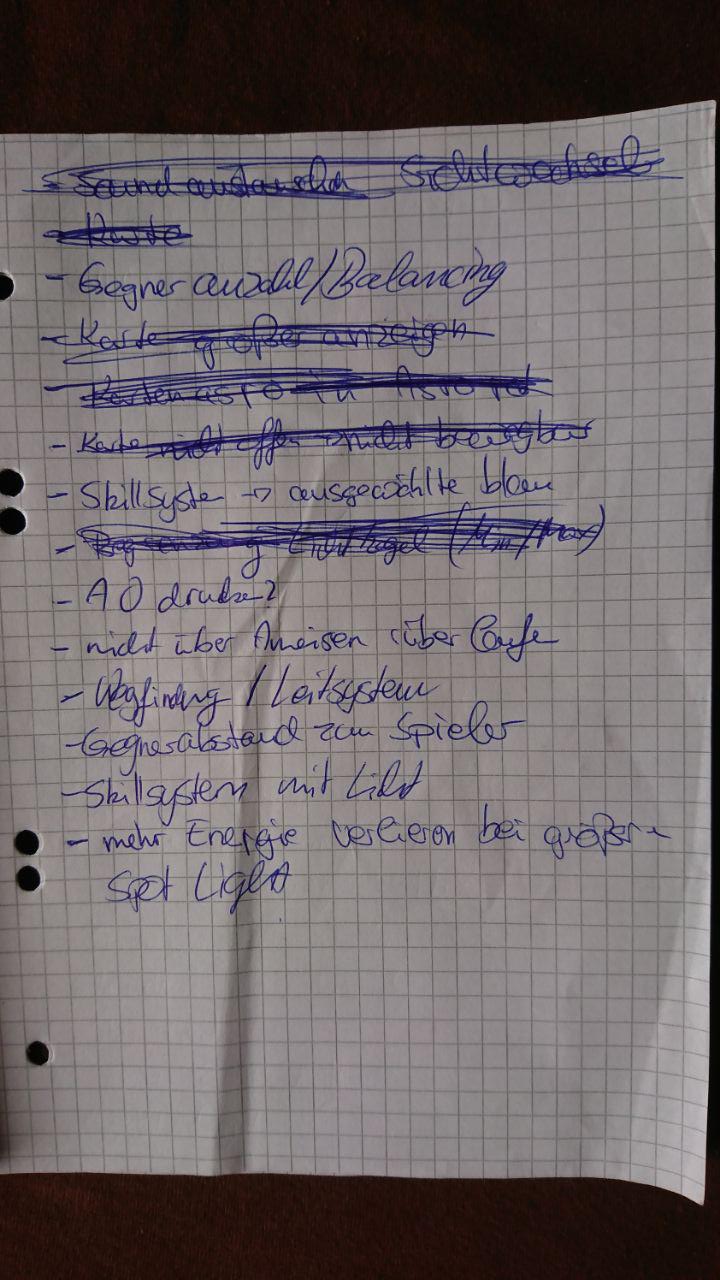 - Sound austauschen Sichtwechsel
- Karte
- Gegner anzahl/Balancing
- Karte größer anzeigen
- Karte nicht offen → nicht bewegbar
- Skillsystem → ausgewählte blau
- (Min/Max)
- A O drucken?
- nicht über Ameisen über Laufen
- Wegfindung / Leitsystem
- Gegnerabstand zum Spieler
- Skillsystem mit Licht
- mehr Energie verlieren bei größeren
Spot Light